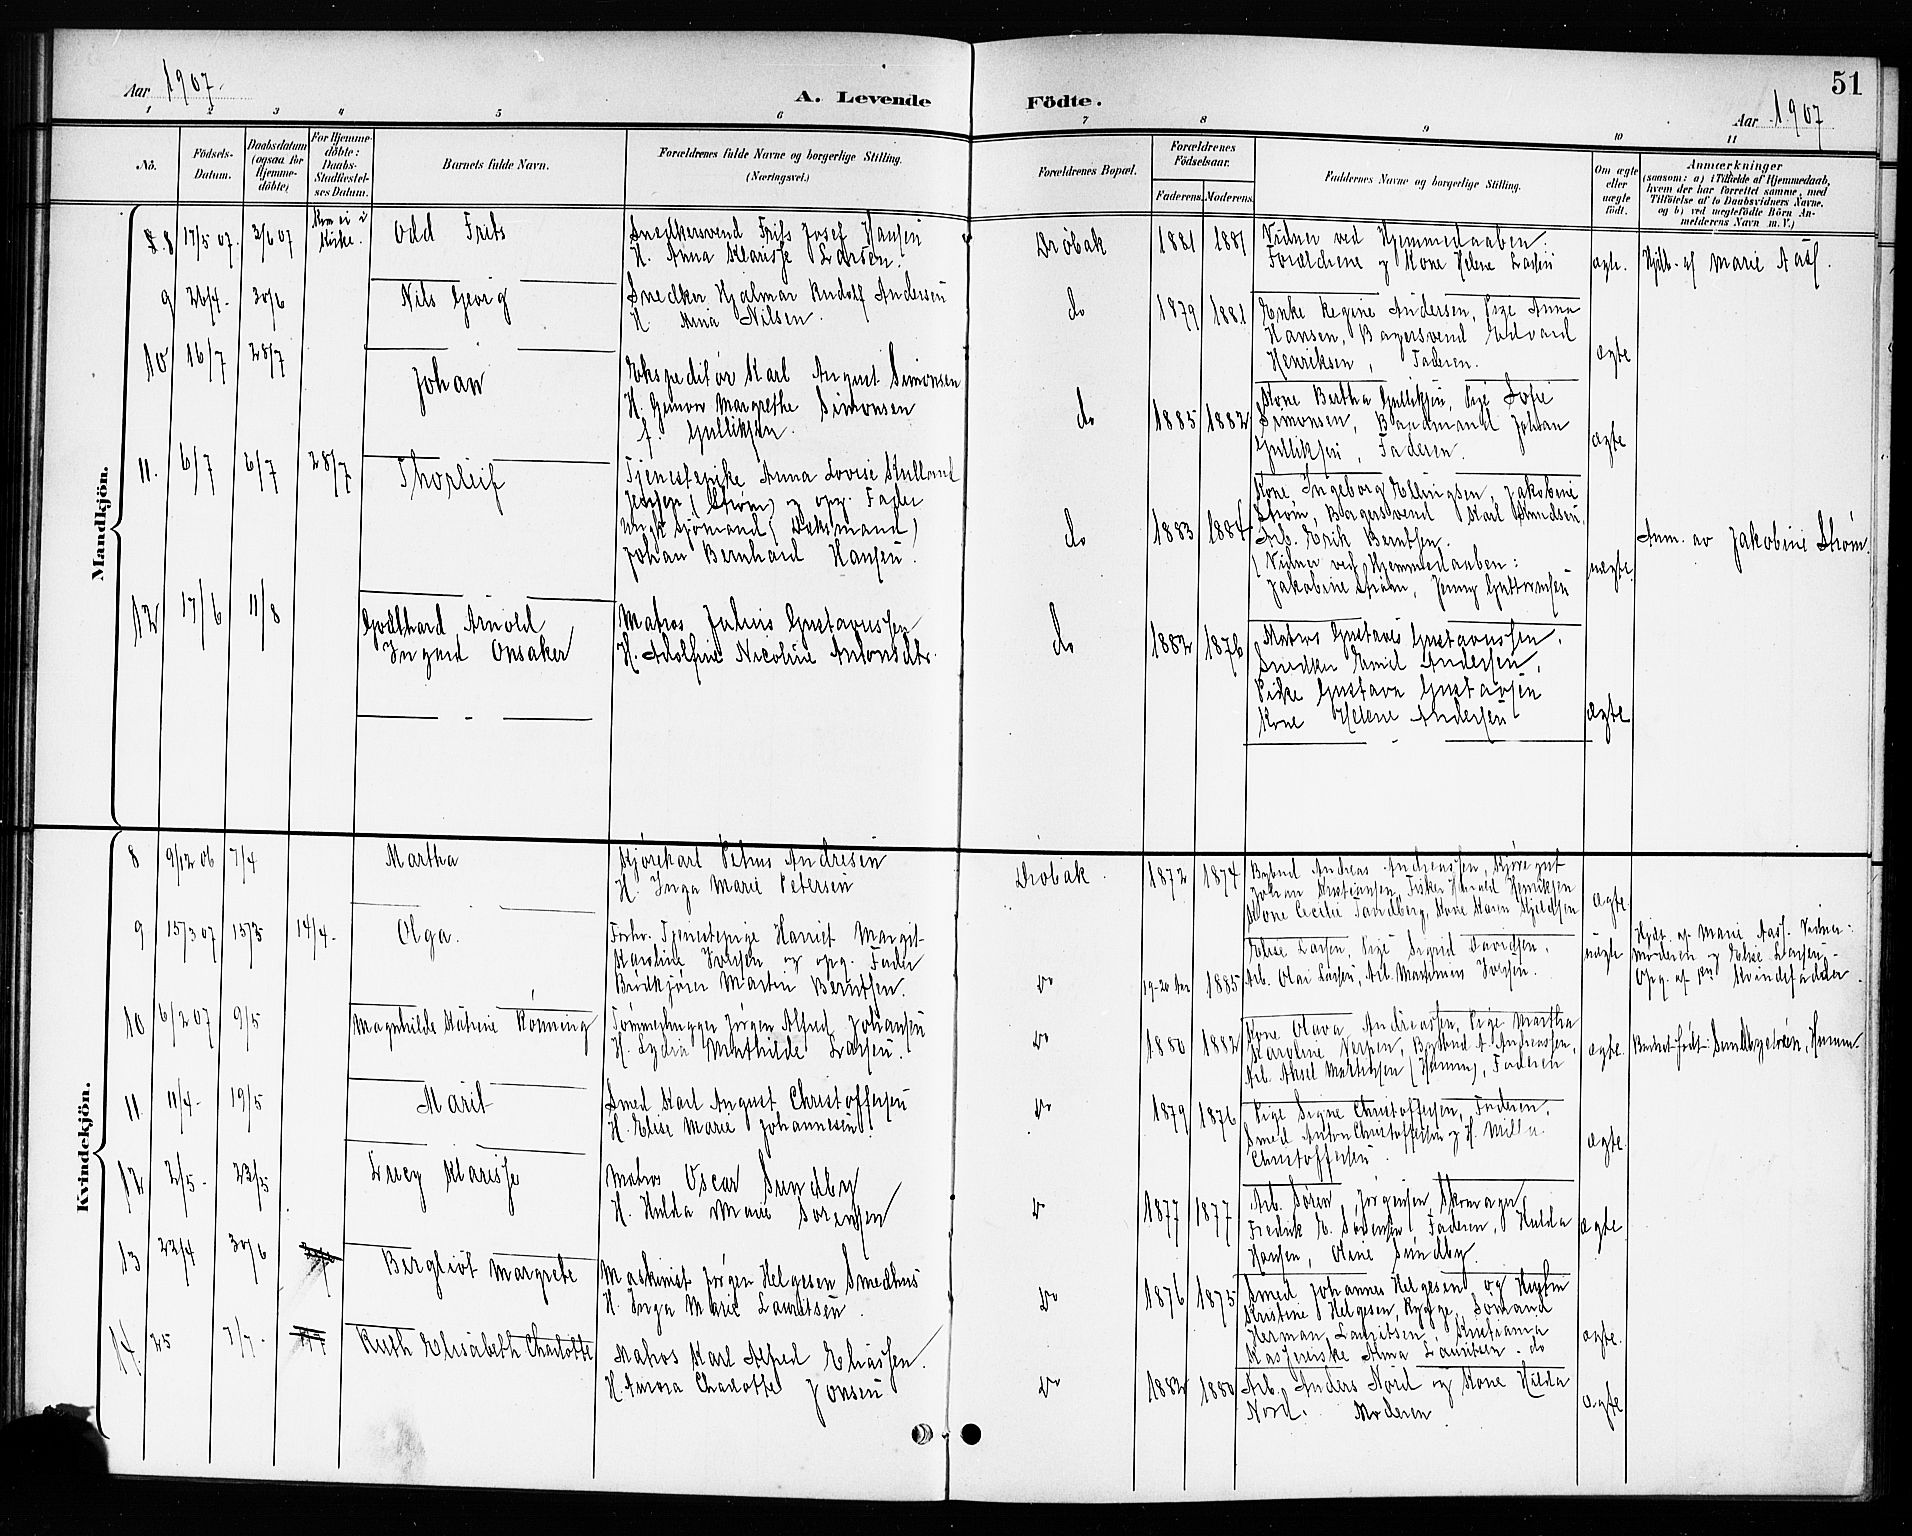 51
Aar 1907.
A. Levende Födte.
Aar 1907
1 2 3 4 5 6 7 8 9 10 11
No.
Födsels-
Datum.
Daabsdatum
(ogsaa for
Hjemme-
döbte)
For Hjemme-
döbte:
Daabs-
Stadfæstel-
ses Datum.
Barnets fulde Navn.
Forældrenes fulde Navne og borgerlige Stilling.
(Næringsvei.)
Forældrenes Bopæl.
Forældrenes
Födselsaar.
Faderens. Moderens.
Faddernes Navne og borgerlige Stilling.
Om ægte
eller
uægte
födt.
Anmærkninger
(saasom: a) i Tilfælde af Hjemmedaab,
hvem der har forrettet samme, med
Tilföielse af to Daabsvidners Navne,
og b) ved uegtefödte Börn An-
melderens Navn m. V.)
Mandkjön.
8 17/5 07. 3/6 07
Kom ei i
Kirke.
Odd Frits
Snedkersvend Frits Josef Hansen
H. Anna Klarisse Larsen.
Drøbak 1881 1881
Vidner ved Hjemmedaaben:
Forældrene og Kone Helene Larsen
ægte.
Hjdb. af Marie Aass.
9 26/4- 30/6
Nils Georg
Snedker Hjalmar Rudolf Andersen
H. Mina Nilsen.
do 1879 1881
Enke Regine Andersen, Pige Anna
Hansen, Bagersvend Edvard
Henriksen, Faderen.
ægte
10 16/7 28/7
Johan
Ekspeditør Karl August Simonsen
H. Margrethe Simonsen
f. Gulliksen.
do 1885 1882
Kone Bertha Gulliksen, Pige Sofie
Simonsen, Johan
Gulliksen, Faderen.
ægte
11. 6/7 6/7 28/7
Thorleif
Tjenestepike Anna Lovise
Jensen (Strøm) og opg. Fader
Ungk. Sjømand
Johan Bernhard Hansen.
do 1883 1884
Kone Ingeborg Ellingsen, Jakobine
Strøm, Bagersvend Karl
Arb. Erik Berntsen.
(Vidner ved Hjemmedaaben:
Jakobine Strøm, Jenny Guttormsen
uægte.
Anm. av Jakobine Strøm.
12 17/6 11/8
Godthard Arnold
Ingvald Onsaker
Matros Julius Gustavussen
H. Adolfine Nicoline Antonsdtr.
do 1882 1876
Matros Gustavus Gustavussen,
Snedker Emil Andersen,
Pike Gustava Gustavsen
Kone Helene Andersen
ægte
Kvindekjön.
8 9/12 06 7/4
Martha
Kjørekarl Petrus Andresen
H. Inga Marie Petersen
Drøbak. 1872 1874
Bybud Andreas Andreassen, Kjøregut
Johan Kristiansen, Fisker Harald Henriksen
Kone Cecilie Sandberg, Kone Karen Kjeldsen
ægte.
9 15/3 07 15/3 14/4-
Olga.
Forhv. Tjenestepige Harriet Margit
Karoline Iversen og opg. Fader
Brødkjører Martin Berntsen.
Do 19-20 Aar 1885
Elise Larsen, Pige Sigrid Davidsen,
Arb. Olai Larsen, Arb. Iversen.
uægte
Hjdt. af Marie Aass. Vidner:
Moderen og Elise Larsen.-
Opg. af en Kvindefadder
10 6/2 07 9/5
Magnhilde Katrine Rönning
Tømmerhugger Jørgen Alfred Johansen
H. Lydia Mathilde Larsen.
Do 1880 1882
Kone Olava Andreassen, Pige Martha
Karoline Bybud A. Andreassen,
Arb. Aksel Martinsen (Hummn), Faderen
ægte.
Barnet født: Humm.
11. 11/4- 19/5
Marit
Smed Karl August Christoffersen
H. Elise Marie Johannesen.
Do 1879 1876
Pige Signe Christoffersen, Faderen,
Smed Anton Christoffersen og H. Milla
Christoffersen.
ægte.
12 2/5- 23/5
Lucy Klarisse
Matros Oscar Sundby
H. Hulda Marie Sørensen
Do 1877 1877
Arb. Søren Jørgensen, Skomager
Fredrik E. Sørensen, Faderen, Hulda
Hansen, Oline Sundby
ægte.
13 22/4 30/6
Bergliot Margrete
Maskinist Jørgen Helgesen Smedhus
H. Inga Marie Lauritsen.
Do 1876 1875
Smed Johannes Helgesen og Hustru
Kristine Helgesen, Rygge, Sømand
Herman Lauritsen, Kristiania
Anna Lauritsen. do
ægte.
14. 25 7/7-
Ruth Elisabeth Charlotte
Matros Karl Alfred Eliassen.
H. Aurora Charlotte Jonsen
Do 1882 1880
Arb. Anders Nord og Kone Hilda
Nord. Moderen.
ægte